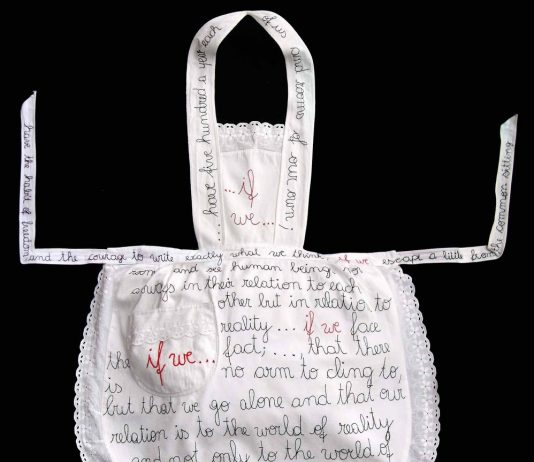 ... have five hundred a year each
of us and rooms of our own;
...if
we...
have the habit of freedom
and the courage to write exactly what we think; if we escape a little from
the common sitting
room and see human being not
always in their relation to each
other but in relatio to
reality... if we face
the
if we...
fact; ..., that there
is
no arm to cling to,
but that we go alone and that our
relation is to the world of reality
and not only to the world of